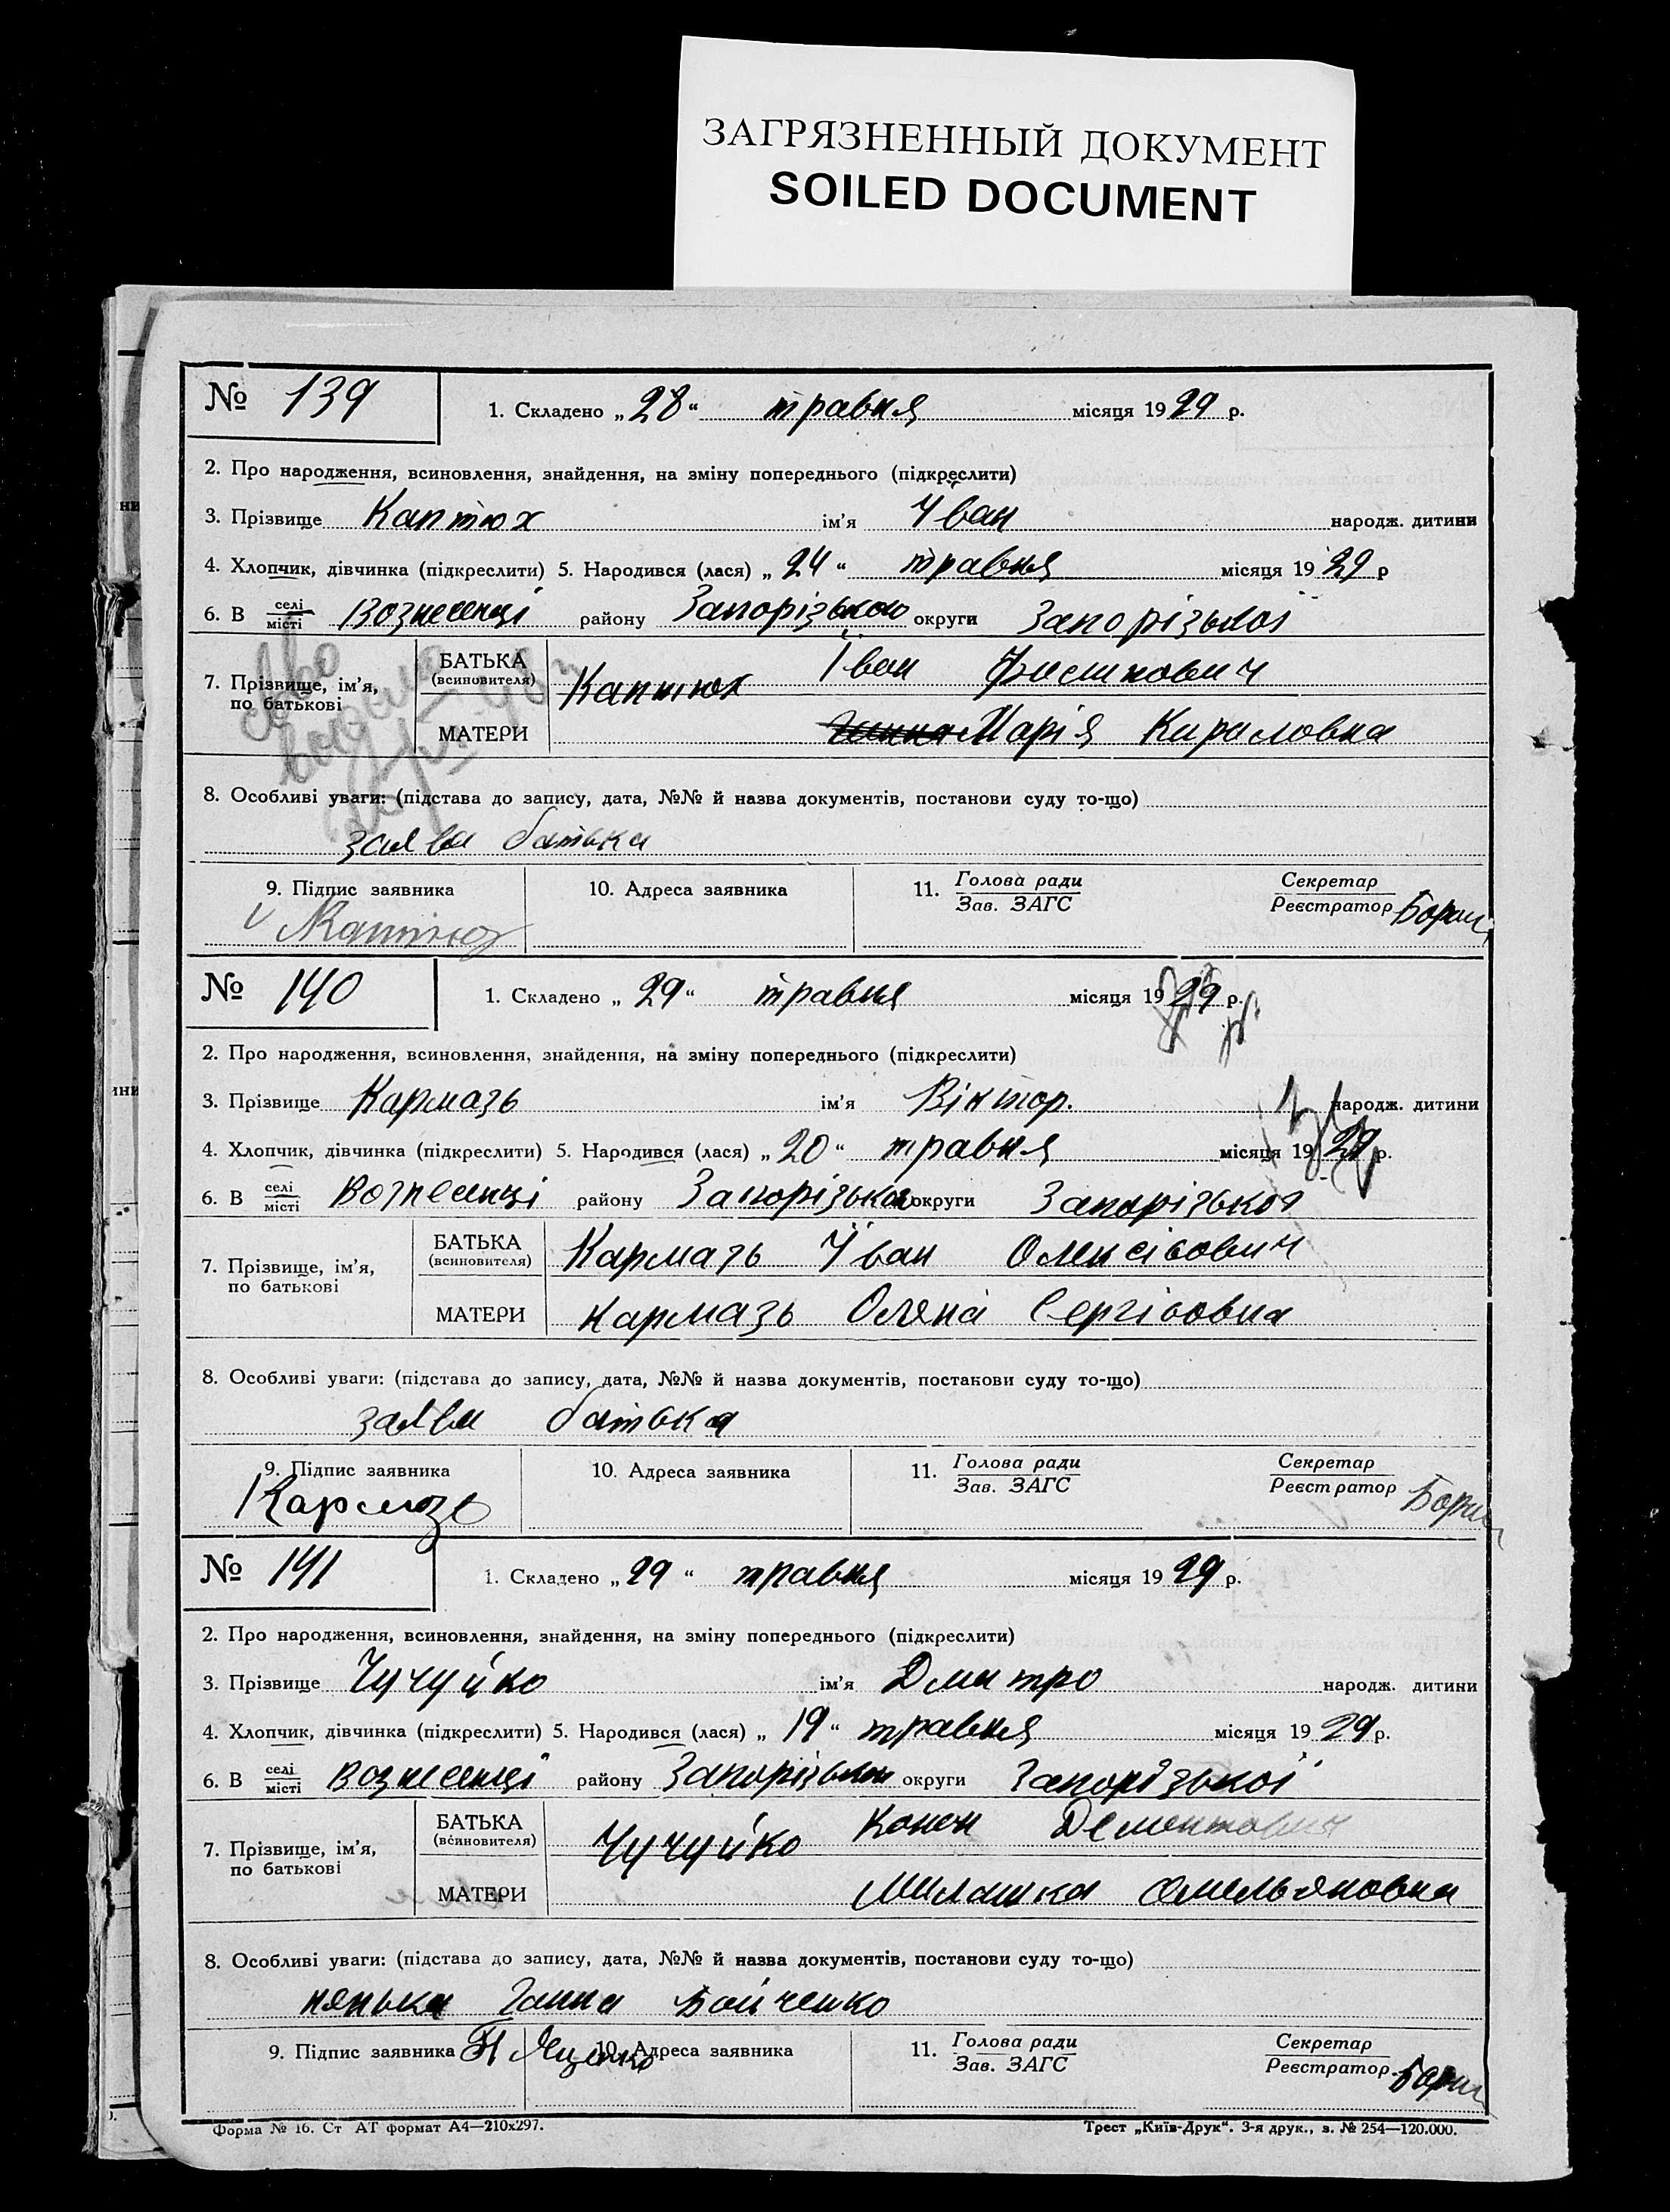 ЗАГРЯЗНЕННЫЙ ДОКУМЕНТ
SOILED DOCUMENT
№ 139
1. Складено „28“ травня місяця 1929 р.
2. Про народження, всиновлення, знайдення, на зміну попереднього (підкреслити)
3. Прізвище Каптюх ім’я Іван народж. дитини
4. Хлопчик, дівчинка (підкреслити) 5. Народився (лася) „24“ травня місяця 1929 р
6. В селі/місті Вознесенці району Запорізького округи Запорізької
7. Прізвище, ім’я, по батькові
БАТЬКА (всиновителя) Каптюх Іван
МАТЕРИ Марія Кириловна
8. Особливі уваги: (підстава до запису, дата, №№ й назва документів, постанови суду то-що)
заява батька
9. Підпис заявника 10. Адреса заявника 11. Голова ради/Зав. ЗАГС Секретар/Реєстратор
№ 140
1. Складено „29“ травня місяця 1929 р.
2. Про народження, всиновлення, знайдення, на зміну попереднього (підкреслити)
3. Прізвище Кармазь ім’я Віктор. народж. дитини
4. Хлопчик, дівчинка (підкреслити) 5. Народився (лася) „20“ травня місяця 1929 р.
6. В селі/місті Вознесенці району Запорізького округи Запорізької
7. Прізвище, ім’я, по батькові
БАТЬКА (всиновителя) Кармазь Іван Олексієвич
МАТЕРИ Кармазь Олена Сергієвна
8. Особливі уваги: (підстава до запису, дата, №№ й назва документів, постанови суду то-що)
заява батька
9. Підпис заявника 10. Адреса заявника 11. Голова ради/Зав. ЗАГС Секретар/Реєстратор
Кармазь
№ 141
1. Складено „29“ травня місяця 1929 р.
2. Про народження, всиновлення, знайдення, на зміну попереднього (підкреслити)
3. Прізвище Чучуйко ім’я Дмитро народж. дитини
4. Хлопчик, дівчинка (підкреслити) 5. Народився (лася) „19“ травня місяця 1929 р.
6. В селі/місті Вознесенці району Запорізького округи Запорізької
7. Прізвище, ім’я, по батькові
БАТЬКА (всиновителя) Чучуйко Конон Дементович
МАТЕРИ Милашка Омельяновна
8. Особливі уваги: (підстава до запису, дата, №№ й назва документів, постанови суду то-що)
нянька Ганна Бойченко
9. Підпис заявника 10. Адреса заявника 11. Голова ради/Зав. ЗАГС Секретар/Реєстратор
Форма № 16. Ст АТ формат А4—210х297.
Трест „Київ-Друк“. 3-я друк., з. № 254—120.000.